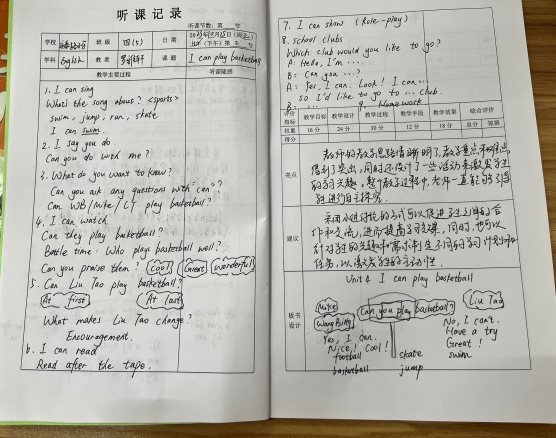 听课记录
听课节数：第 节
学校
班级 四(5)
日期
学科 English
教者
课题 I can play basketball
教学主要过程
听课随感
1. I can sing
What's the song about? <sports>
swim, jump, run, skate
I can swim.
2. I say you do.
Can you do with me?
3. What do you want to know?
Can you ask any questions with "can"?
Can WB/Mike/LT play basketball?
4. I can watch
Can they play basketball?
Battle time: Who plays basketball well?
Can you praise them? Cool Great wonderful
5. Can Liu Tao play basketball?
At first At last
What makes Liu Tao change?
Encouragement.
6. I can read
Read after the tape.
7. I can show (Role-play)
8. school clubs
Which club would you like to go?
A: Hello, I'm ...
B: Can you ...?
A: Yes, I can. Look! I can...
So I'd like to go to ... club.
B: ... 9. Homework
评价指标 教学目标 教学设计 教学过程 教学手段 教学效果 综合评价
权重 16分 24分 30分 12分 18分 总分 等第
得分
亮点
教师的教学思路清晰明了,教学重点和难点
得到了突出,同时还设计了一些活动来激发学生
的学习兴趣。整个教学过程中,老师一直能够引导
学生进行自主探究。
建议
采用小组讨论的方式可以促进学生之间的合
作和交流,进而提高学习效果,同时,也可以
针对学生的兴趣和需求制定不同的学习计划和
任务,以激发学生的主动性。
板书设计
Unit 4 I can play basketball
Mike
Wang Bing
Can you play basketball?
Liu Tao
Yes, I can.
Nice! Cool!
football
basketball
skate
jump
No, I can't.
Have a try
Great!
swim